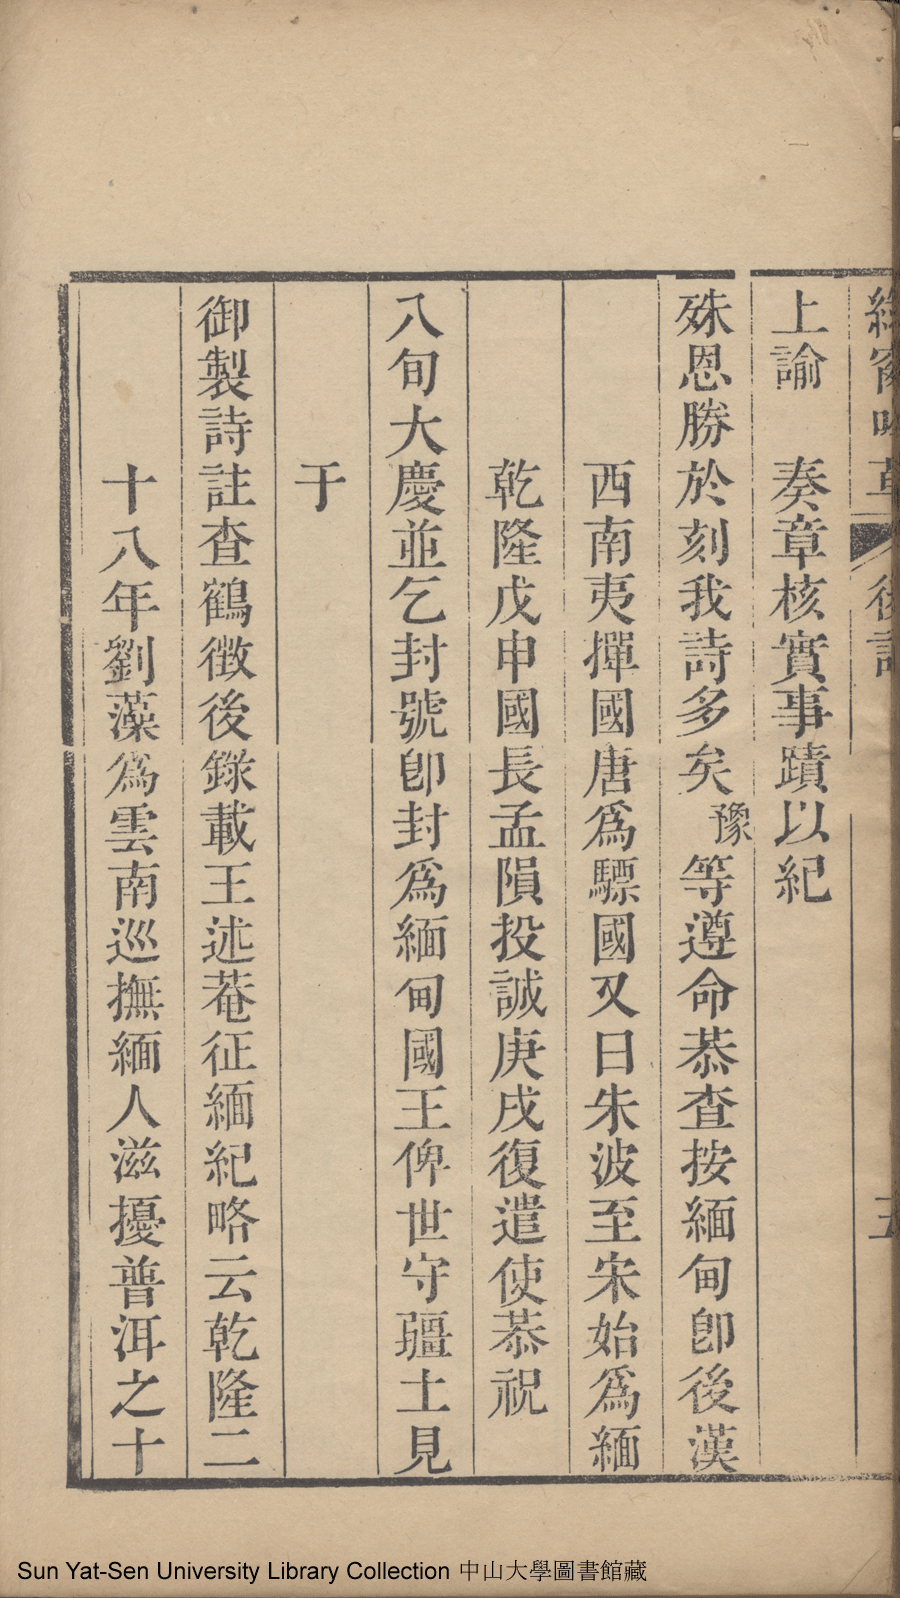 上諭　奏章核實事蹟以紀
殊恩勝於刻我詩多矣豫等遵命恭查按緬甸卽後漢
西南夷撣國唐爲驃國又曰朱波至宋始爲緬
乾隆戊申國長孟隕投誠庚戌復遣使恭祝
八旬大慶並乞封號卽封爲緬甸國王俾世守疆土見
于
御製詩註查鶴徴後錄載王述菴征緬紀略云乾隆二
十八年劉藻爲雲南巡撫緬人滋擾普洱之十
Sun Yat-Sen University Library Collection 中山大學圖書館藏